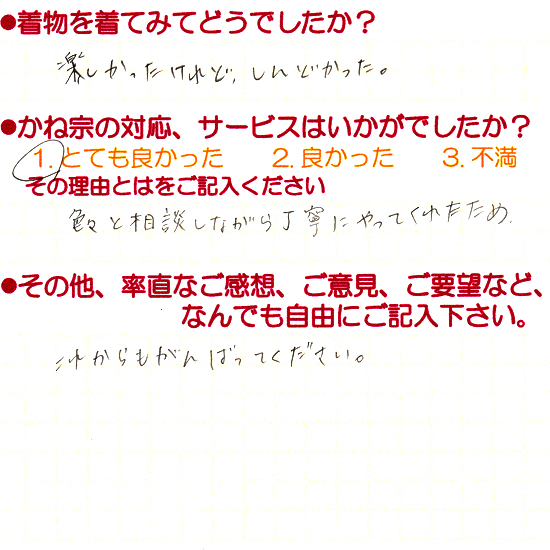 ●着物を着てみてどうでしたか？
楽しかったけれど、しんどかった。
●かね宗の対応、サービスはいかがでしたか？
1. とても良かった 2. 良かった 3. 不満
その理由とはをご記入ください
色々と相談しながら丁寧にやってくれたため.
●その他、率直なご感想、ご意見、ご要望など、
なんでも自由にご記入下さい。
これからもがんばってください。